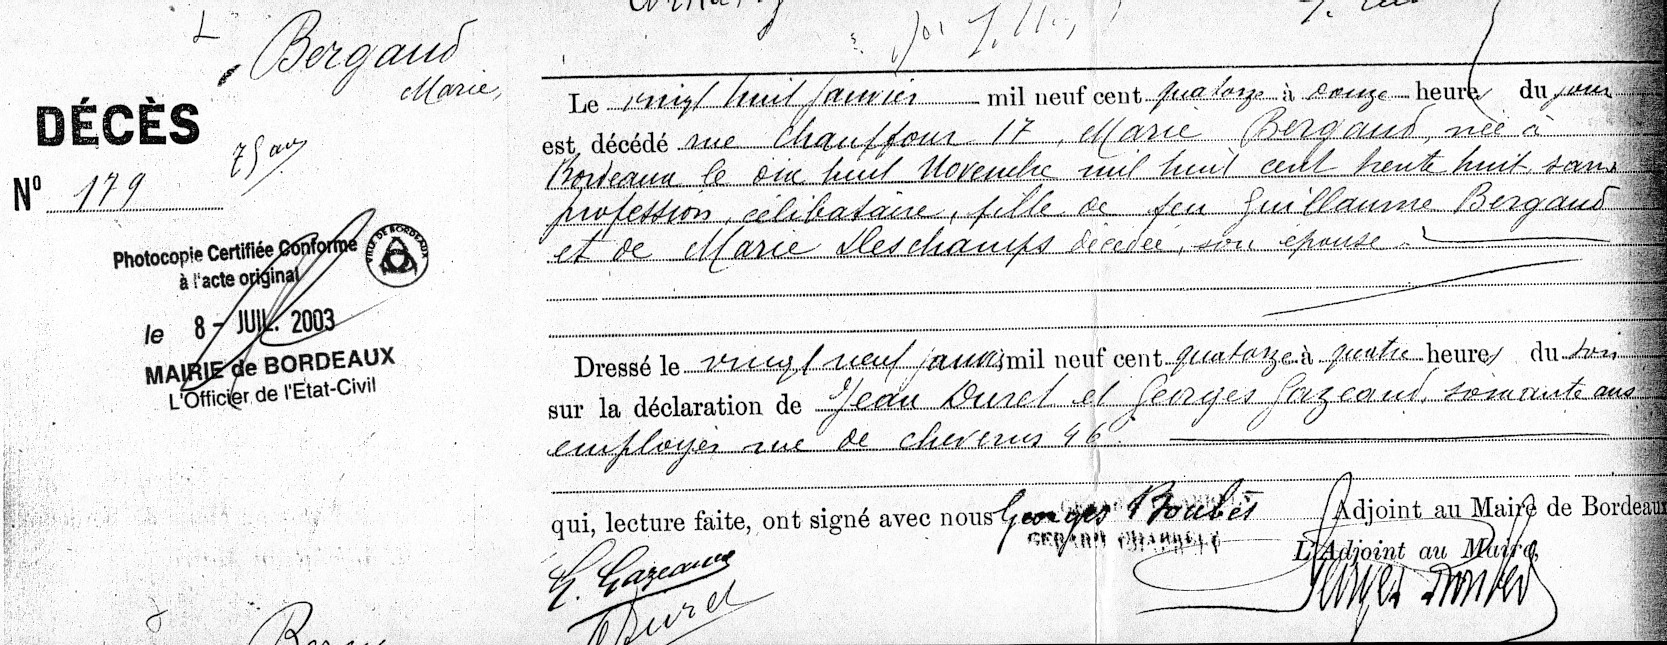 Bergaud
Marie,
DÉCÈS
75 ans
N° 179
Photocopie Certifiée Conforme
à l'acte original
VILLE DE BORDEAUX
le 8 - JUIL. 2003
MAIRIE de BORDEAUX
L'Officier de l'Etat-Civil
Le vingt huit janvier mil neuf cent quatorze à onze heures du jour
est décédé rue Chauffour 17, Marie Bergaud, née à
Bordeaux le dix huit Novembre mil huit cent trente huit, sans
profession, célibataire, fille de feu Guillaume Bergaud
et de Marie Deschamps décédée, son épouse.
Dressé le vingt neuf janvier mil neuf cent quatorze à quatre heures du soir
sur la déclaration de Jean Duret et Georges Gazeaud, soixante ans
employés rue de Cheverus 46.
qui, lecture faite, ont signé avec nous Georges Boubès Adjoint au Maire de Bordeaux
L'Adjoint au Maire,
G. Gazeaud
Duret
Georges Boubès